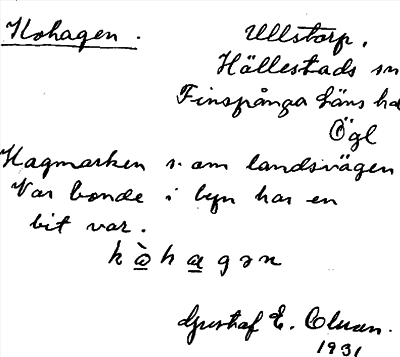 Kohagen.
Ullstorp.
Hällestads sn
Finspånga läns hd
Ögl
Hagmarken s. om landsvägen
Var bonde i byn har en
bit var.
kòhagən
Gustaf E.
1931